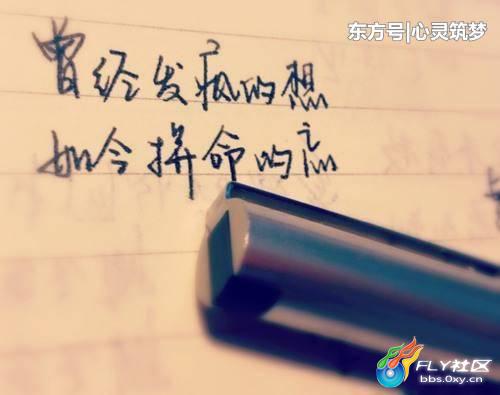 东方号|心灵筑梦
曾经发疯的想
如今拼命的忘
FLY社区
bbs.0xy.cn